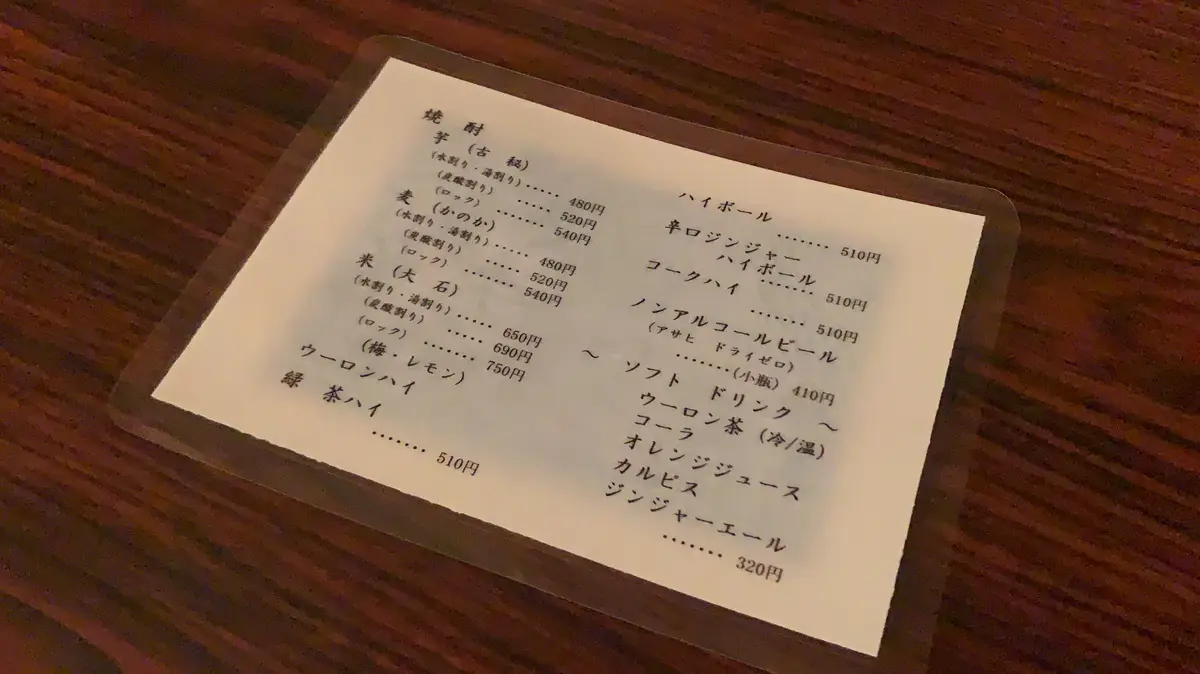 焼 酎
芋 (古 秘)
(水割り・湯割り)‥‥‥ 480円
(炭酸割り) ‥‥‥ 520円
(ロック) ‥‥‥‥ 540円
麦 (かのか)
(水割り・湯割り)‥‥‥ 480円
(炭酸割り) ‥‥‥ 520円
(ロック) ‥‥‥‥ 540円
米 (大 石)
(水割り・湯割り)‥‥‥ 650円
(炭酸割り) ‥‥‥ 690円
(ロック) ‥‥‥‥ 750円
(梅・レモン)
ウーロンハイ
緑 茶ハイ
‥‥‥‥ 510円
ハイボール
‥‥‥‥ 510円
辛口ジンジャー
ハイボール
‥‥‥‥ 510円
コークハイ
‥‥‥‥ 510円
ノンアルコールビール
(アサヒ ドライゼロ)
‥‥‥‥(小瓶) 410円
～ ソフト ドリンク ～
ウーロン茶 (冷/温)
コーラ
オレンジジュース
カルピス
ジンジャーエール
‥‥‥‥ 320円